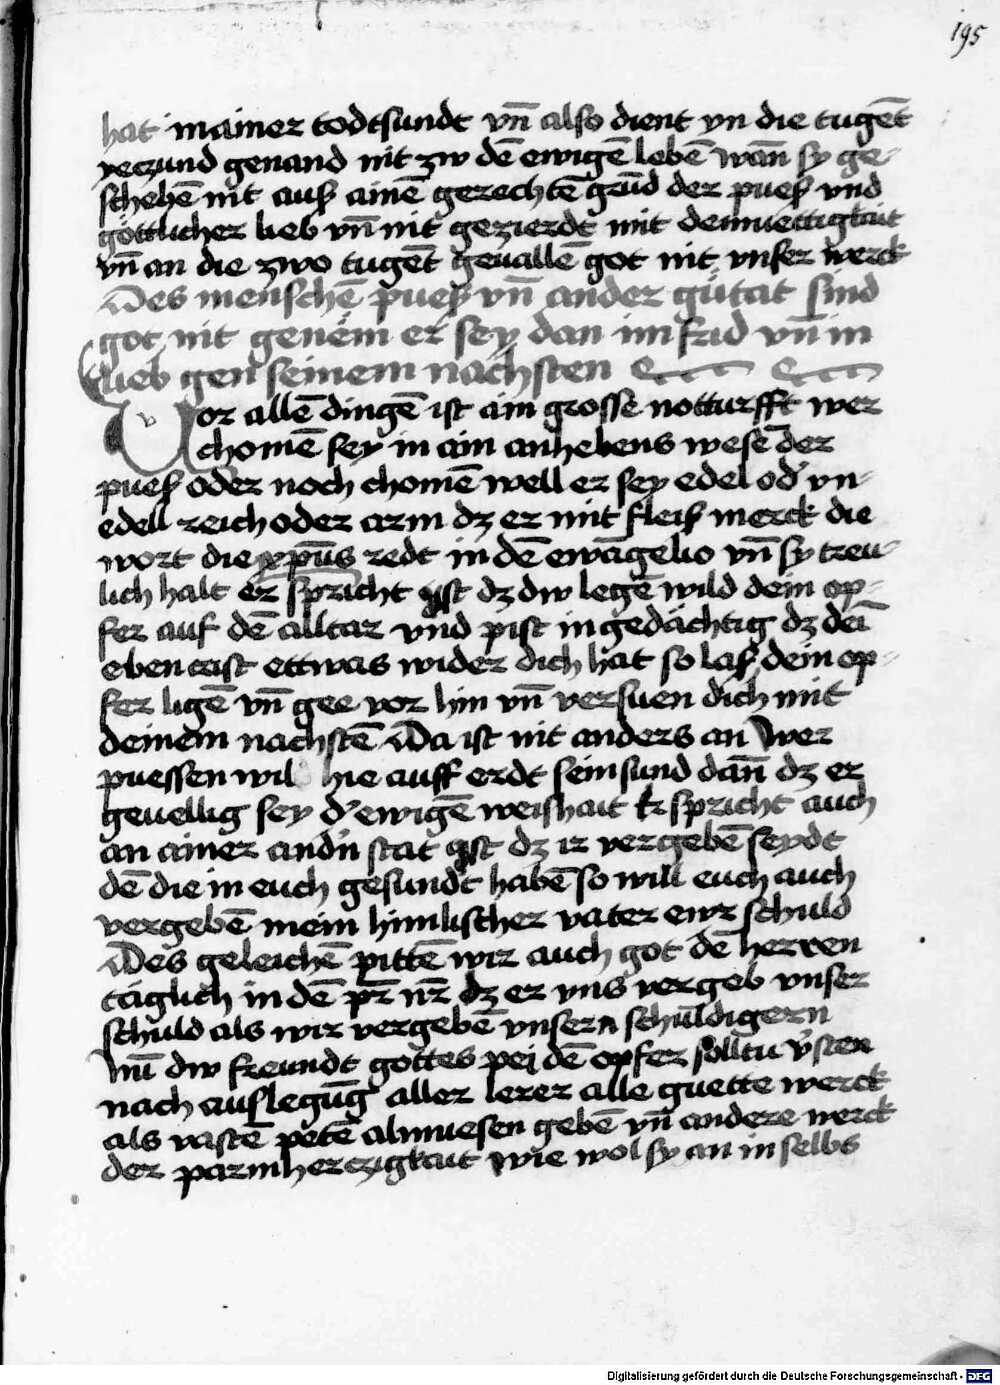 195
hat in ainer todtsundt vn̄ also dient yn die tugēt
yeczund genand nit zw dē ewigē lebē wān sy ge-
schehē nit aus ainē gerechtē grūd der pueß vnd
göttlicher lieb vn̄ nit gezierdt mit demuettigkait
vn̄ an die zwo tugēt geuallē got nit vnser werck
Des menschē pueß vn̄ ander gůtat sind
got nit genēm er sey dan im frid vn̄ in
lieb gen seinem nächsten
Vor allē dingē ist ain grosse notturfft wer
chomē sey in ain anhebens wesē der
pueß oder noch chomē well er sey edel od' vn-
edell reich oder arm dz er mit fleiß merck die
wort die xp̄us redt in dē ewāgelio vn̄ sy treu-
lich halt er spricht ist dz dw legē wild dein op-
fer auf dē alltar vnd pist ingedächtig dz dei̅
eben crist ettwas wider dich hat so laß dein op-
fer ligē vn̄ gee vor hin vn̄ versuen dich mit
deinem nachstē Da ist nit anders an wer
puessen wil hie auff erdt sein sund dan̄ dz er
geuellig sey d' ewigē weishait Er spricht auch
an ainer and'n stat ist dz ir vergebē seydt
dē die in euch gesundt habē so will euch auch
vergebē mein himlischer vater ewr schuld
Des geleichē pittē wir auch got dē herren
täglich in dē pr̄ nr̄ dz er vns vergeb vnser
schuld als wir vergebē vnsern schuldigern
Nu̅ dw freundt gottes pej dē opfer solltu v'sten
nach auslegūg aller lerer alle guette werck
als vastē petē almuesen gebē vn̄ andere werck
der parmherczigkait wie wol sy an in selbs
Digitalisierung gefördert durch die Deutsche Forschungsgemeinschaft - DFG